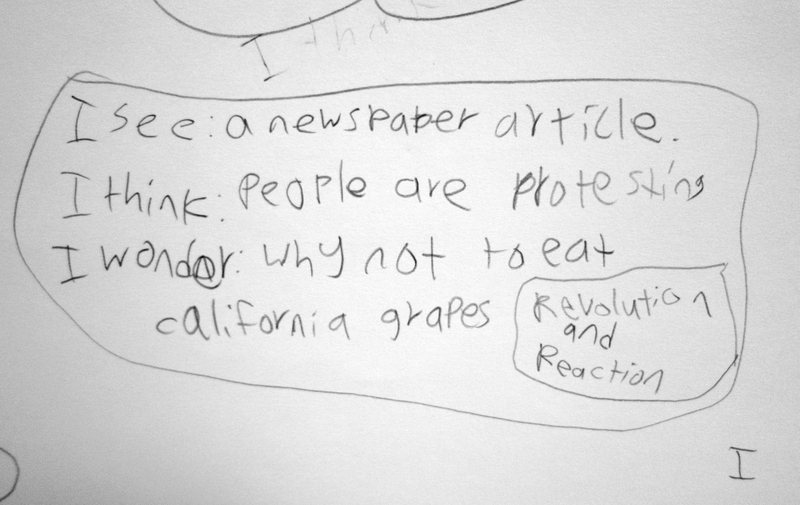 I think
I see: a newspaper article.
I think: People are protesting
I wonder: why not to eat
california grapes
Revolution
and
Reaction
I